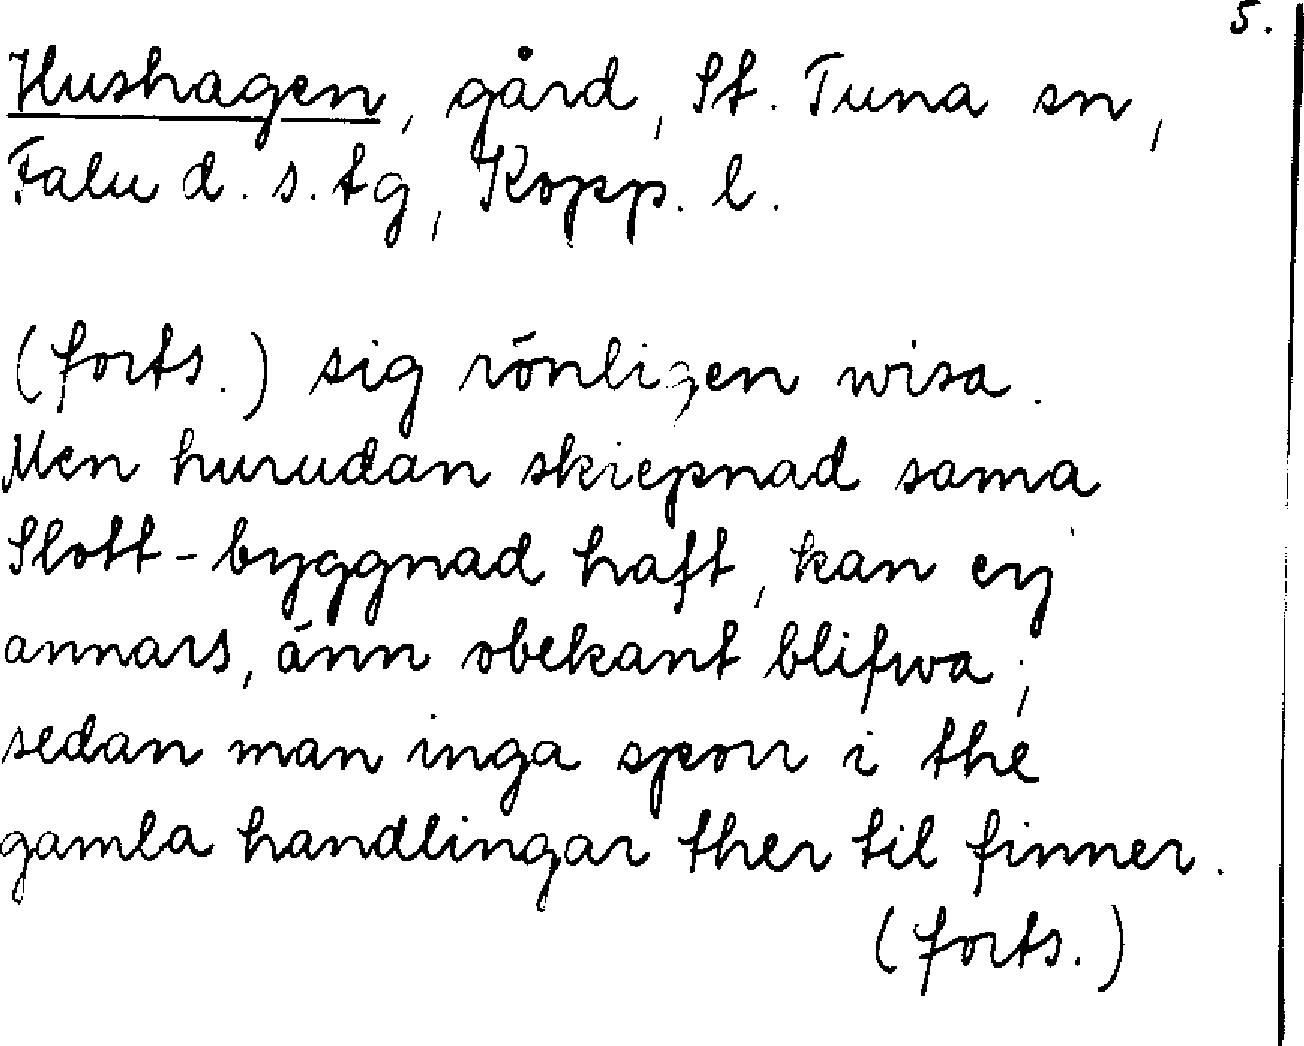 5.
Hushagen, gård, St. Tuna sn,
Falu d. s. tg, Kopp. l.
(forts.) sig rönligen wisa.
Men hurudan skiepnad sama
Slott-byggnad haft, kan ey
annars, änn obekant blifwa;
sedan man inga sporr i the
gamla handlingar ther til finner.
(forts.)